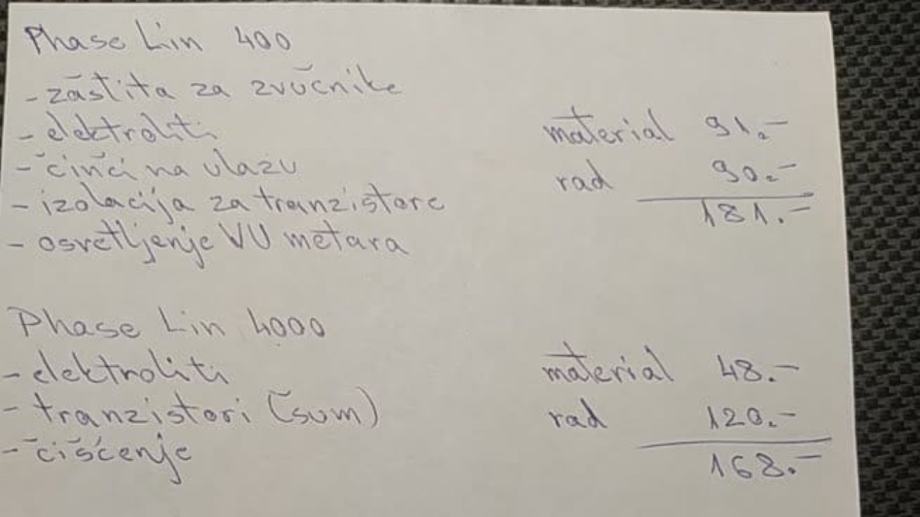 Phase Lin 400
- zaštita za zvučnike
- elektroliti
- činči na ulazu
- izolacija za tranzistore
- osvetljenje VU metara
material 91.-
rad 90.-
181.-
Phase Lin 4000
- elektroliti
- tranzistori (šum)
- čišćenje
material 48.-
rad 120.-
168.-